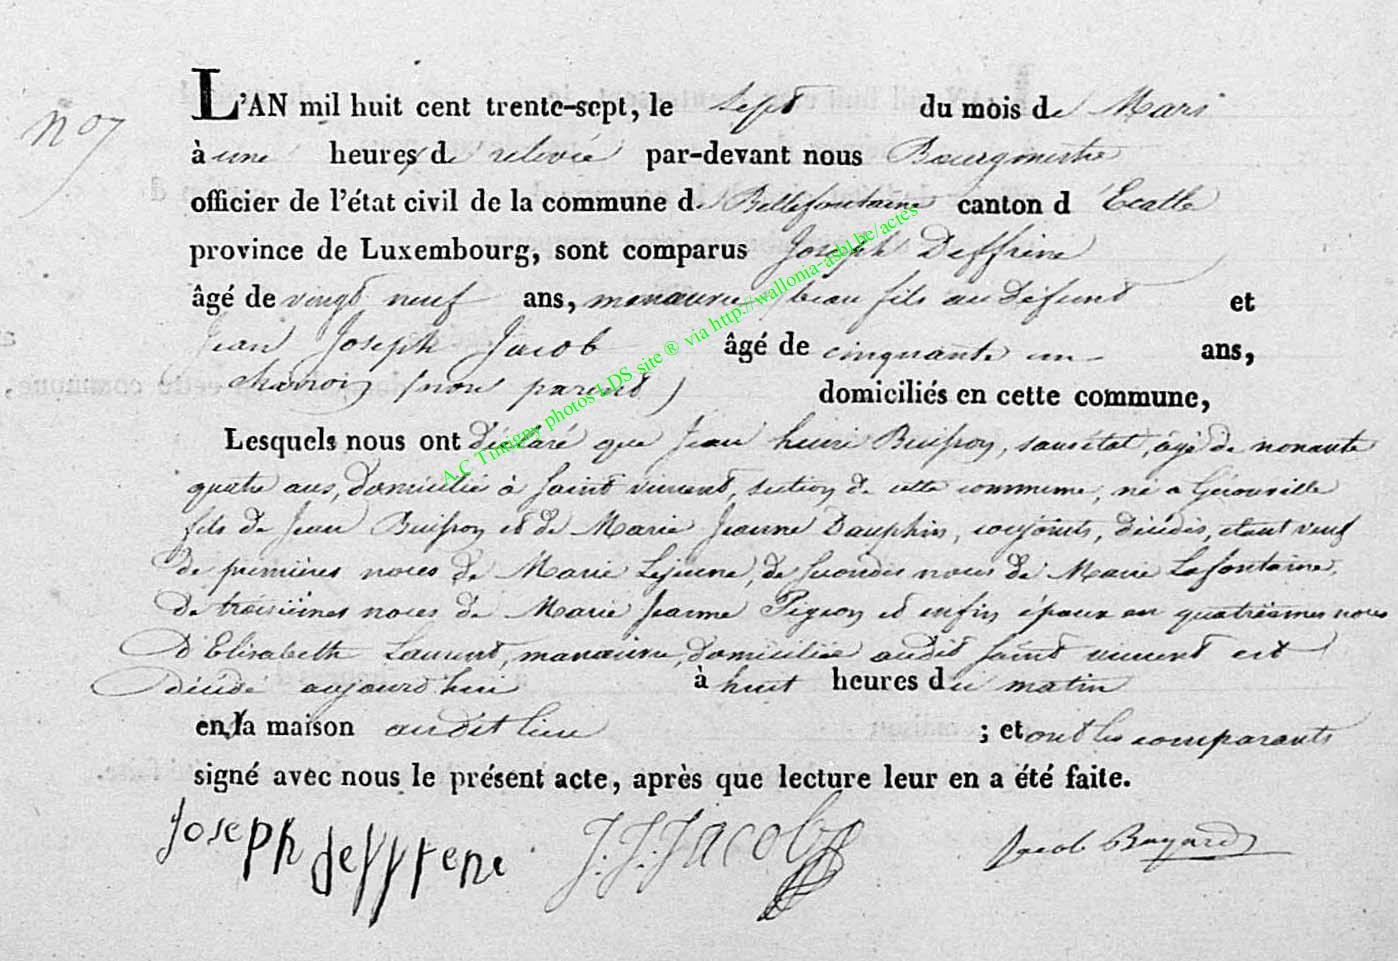 n° 7
L'AN mil huit cent trente-sept, le sept du mois de Mars
à une heures de relevée par-devant nous Bourgmestre
officier de l'état civil de la commune de Bellefontaine canton d' Etalle
province de Luxembourg, sont comparus Joseph Deffrène
âgé de vingt neuf ans, manœuvre, beau fils au défunt et
Jean Joseph Jacob âgé de cinquante un ans,
charron (non parent) domiciliés en cette commune,
Lesquels nous ont déclaré que Jean henri Buisson, sans état, âgé de nonante
quatre ans, domicilié à Saint vincent, section de cette commune, né a Gérouville
fils de Jean Buisson et de Marie Jeanne Dauphin, conjoints, décédés, etant veuf
de premières noces de Marie Lejeune, de secondes noces de Marie Lafontaine,
de troisièmes noces de Marie Jeanne Pigeon et enfin époux en quatrièmes noces
d'Elisabeth Laurent, manœuvre, domiciliée audit Saint vincent est
décédé aujourd'hui à huit heures du matin
en la maison audit lieu ; et ont les comparants
signé avec nous le présent acte, après que lecture leur en a été faite.
Joseph deffrene J. J. Jacob Jacob Bayard
A.C Tintigny photos LDS site ® via http://wallonia-asbl.be/actes